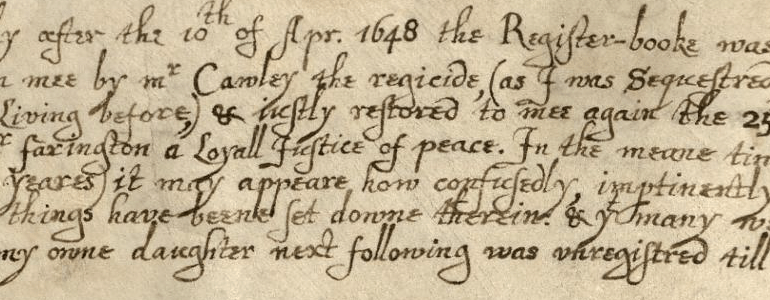 y after the 10th of Apr. 1648 the Register-booke was
mee by mr Cawley the regicide, (as I was Sequestred
Living before,) & iustly restored to mee again the 25
r farington a Loyall Justice of peace. In the meane tim
yeares) it may appeare how confusedly, imptinently
things have beene set downe therein. & yt many w
ny owne daughter next following was unregistred till